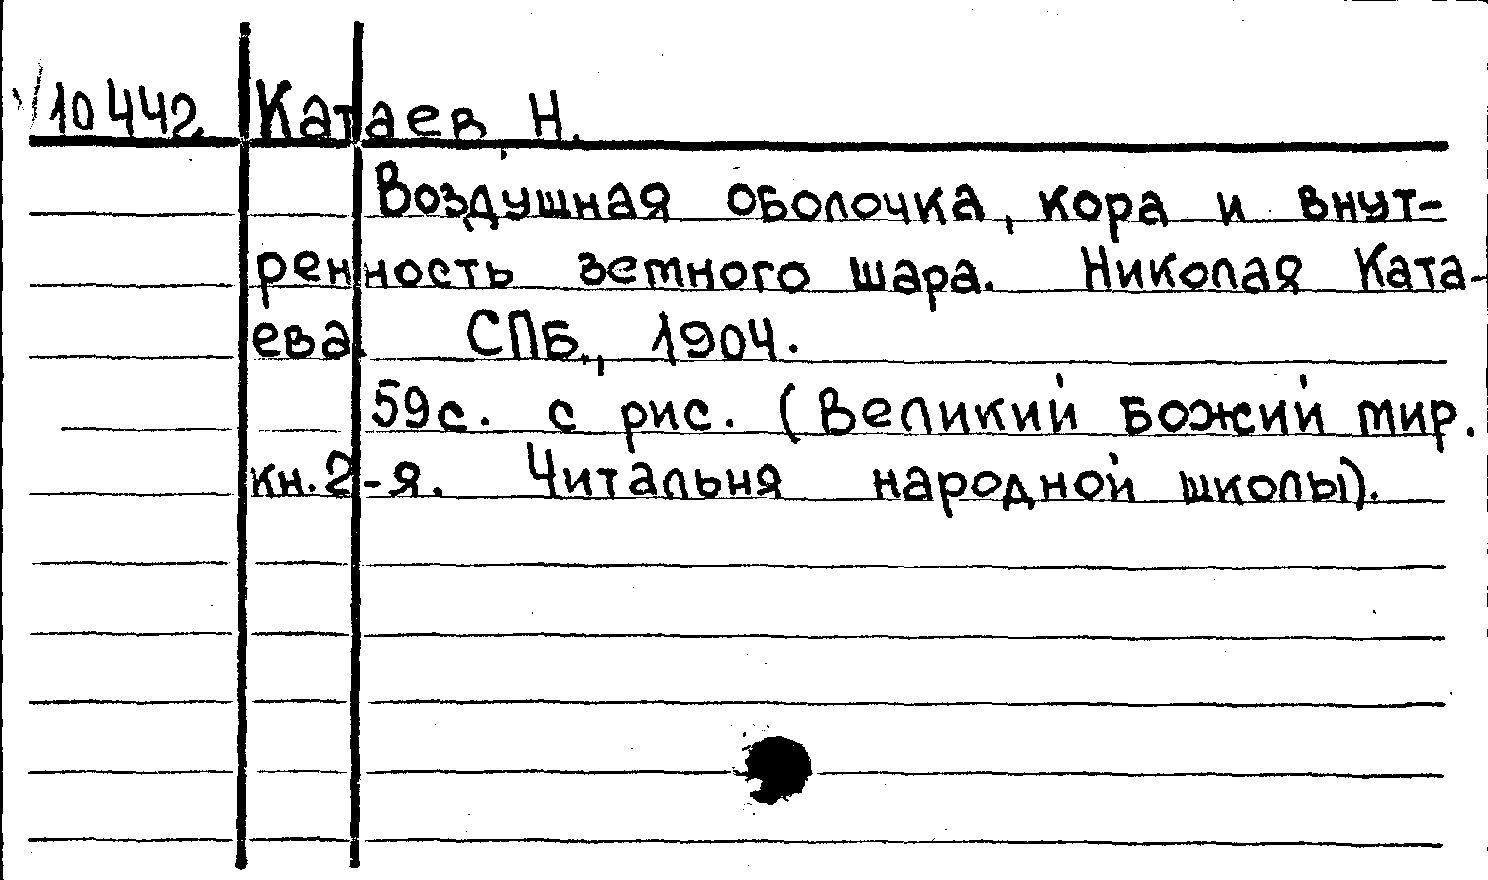 10442 Катаев, Н.
Воздушная оболочка, кора и внут-
ренность земного шара. Николая Ката-
ева. СПБ., 1904.
59с. с рис. (Великий Божий мир.
кн.2-я. Читальня народной школы).